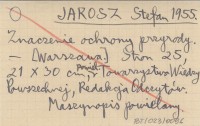 JAROSZ Stefan 1955.
Znaczenie ochrony przyrody.
— [Warszawa.] Stron 25,
21 X 30 cm, Towarzystwo Wiedzy
Powszechnej, Redakcja Odczytów.
Maszynopis powielany.